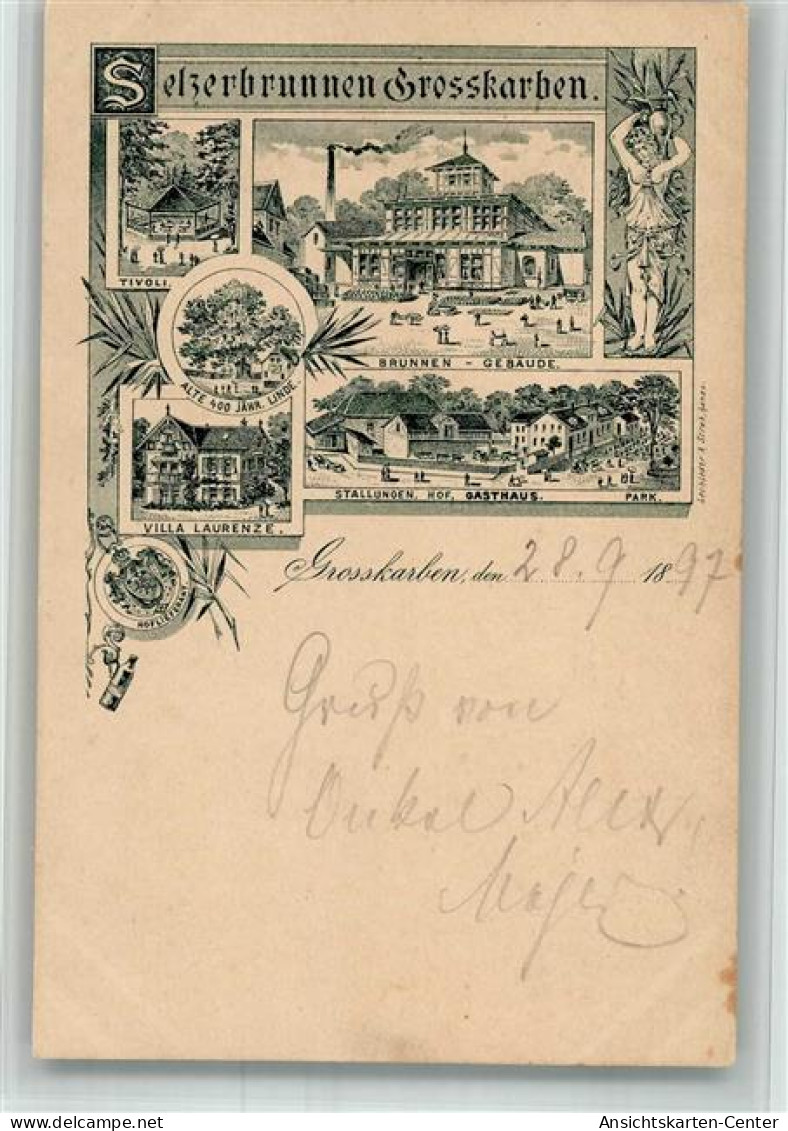 Selzerbrunnen Grosskarben.
TIVOLI.
BRUNNEN - GEBÄUDE.
ALTE 400 JÄHR. LINDE.
STALLUNGEN, HOF, GASTHAUS. PARK.
VILLA LAURENZE.
HOFLIEFERANT
Grosskarben, den 28. 9 1897
Gruß von
Onkel
Ansichtskarten-Center